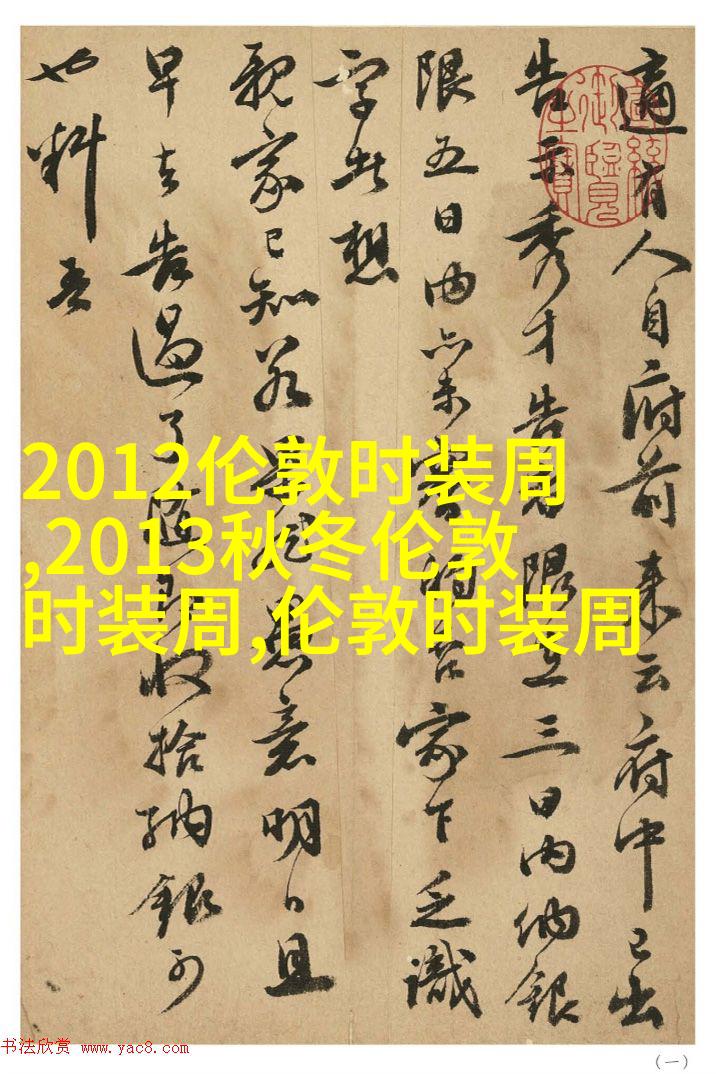 適有人自府前来云府中已出
告示秀才告限三日内納銀
限五日内家下乏識
字者想
親家已知意明日且
早去告過了收拾納銀可
也料吾
御覽
2012伦敦时装周
,2013秋冬伦敦
时装周,伦敦时装周
书法欣赏 www.yac8.com
(一)